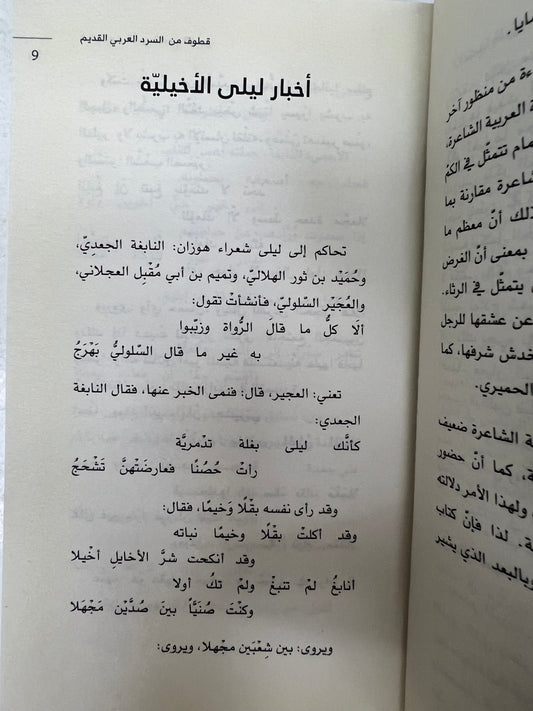 قطوف من السرد العربي القديم
9
أخبار ليلى الأخيليّة
تحاكم إلى ليلى شعراء هوزان: النابغة الجعديّ،
وحُمَيْد بن ثور الهلاليّ، وتميم بن أبي مُقْبِل العجلاني،
والعُجَيْر السلوليّ، فأنشأتْ تقول:
ألَا كلُّ ما قالَ الرُّواة وزبّبوا
به غير ما قال السّلوليُّ بَهْرَجُ
تعني: العجير، قال: فنمى الخبر عنها، فقال النابغة
الجعدي:
كأنَّك ليلى بغلة تدْمريَّة
رأتْ حُصُنًا فعارضَتْهنَّ تَشْحَجُ
وقد رأى نفسه بقْلًا وَخيمًا، فقال:
وقد أكلتْ بقْلًا وخيمًا نباته
وقد أنكحت شرَّ الأخايلِ أخْيلا
أنابغُ لمْ تنبغْ ولمْ تكُ أولا
وكنْتَ صُنَيًّا بينَ صدَّيْن مَجْهَلا
ويروى: بين شِعْبَين مجْهلا، ويروى:
سايا.
ءة من منظور آخر
ة العربية الشاعرة،
مام تتمثّل في الكمّ
شاعرة مقارنة بما
لك أنّ معظم ما
بمعنى أنّ الغرض
يتمثّل في الرثاء.
عن عشقها للرجل
خدش شرفها، كما
الحميري.
ة الشاعرة ضعيف
، كما أنّ حضور
ولهذا الأمر دلالته
ة. لذا فإنّ كتاب
وبالبعد الذي يشير